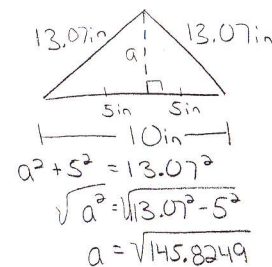 13.07in 13.07in
a
5in 5in
10in
a² + 5² = 13.07²
√a² = √13.07² - 5²
a = √145.8249